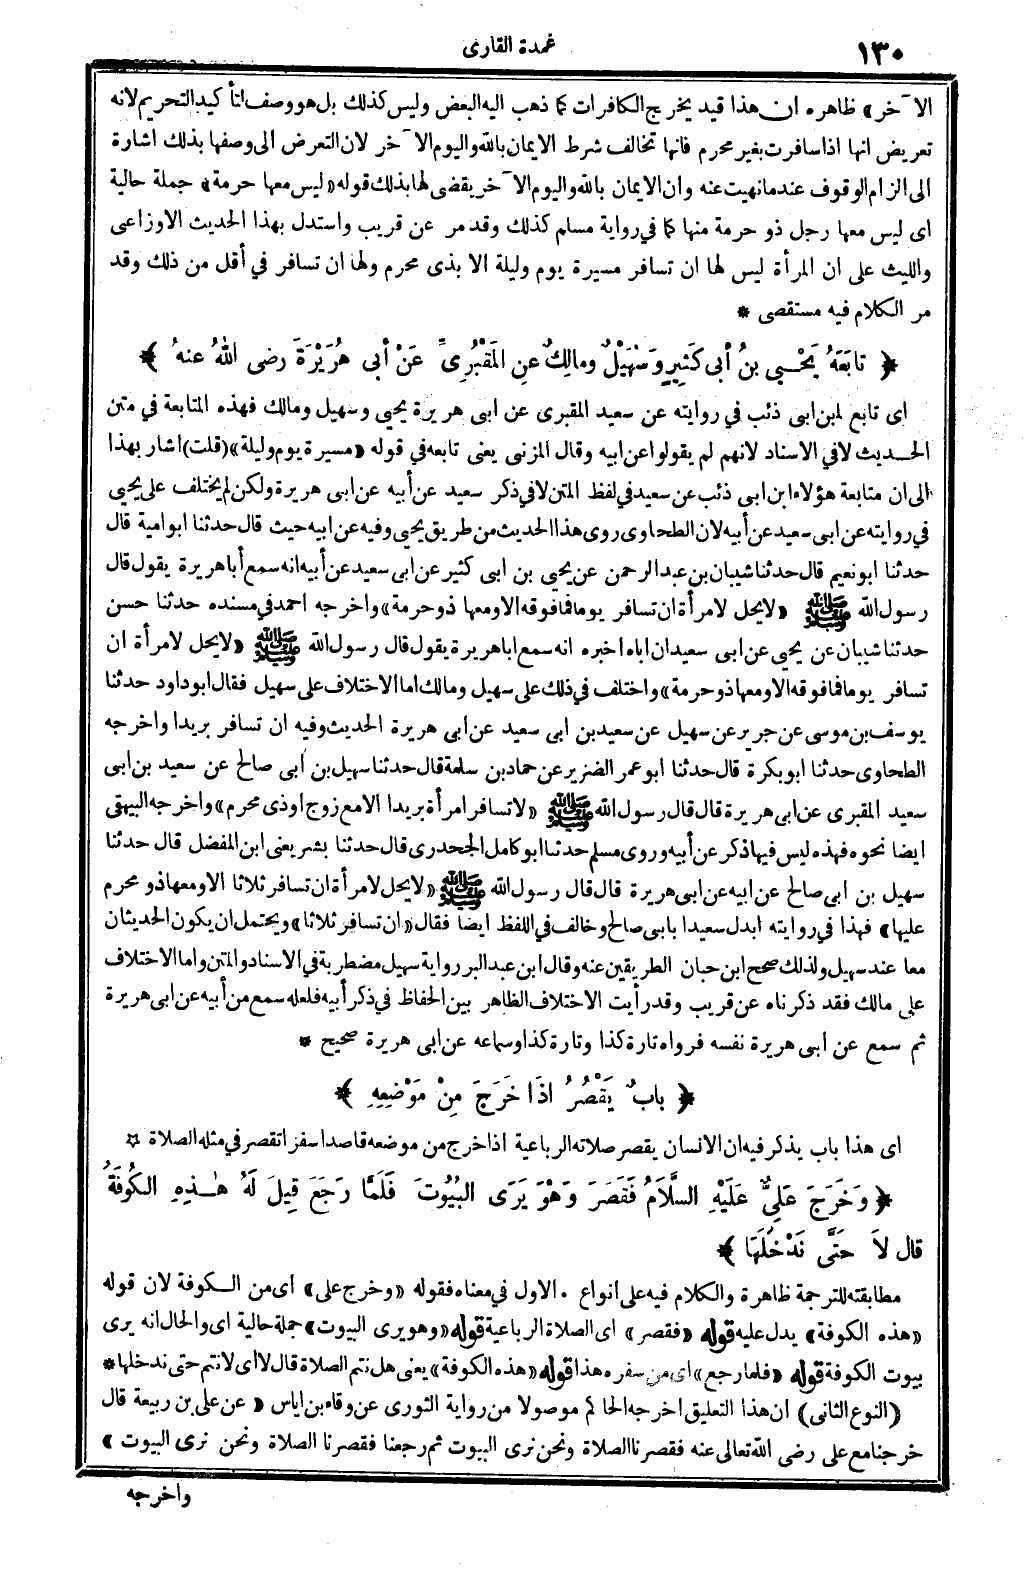 ١٣٠
عمدة القارى
الآخر» ظاهره ان هذا قيد يخرج الكافرات كما ذهب اليه البعض وليس كذلك بل هو وصف لتأكيد التحريم لانه
تعريض انها اذا سافرت بغير محرم فانها تخالف شرط الايمان بالله واليوم الآخر لان التعرض الى وصفها بذلك اشارة
الى الزام الوقوف عند ما نهيت عنه وان الايمان بالله واليوم الآخر يقضى لها بذلك قوله «ليس معها حرمة» جملة حالية
اى ليس معها رجل ذو حرمة منها كما في رواية مسلم كذلك وقد مر عن قريب واستدل بهذا الحديث الاوزاعى
والليث على ان المرأة ليس لها ان تسافر مسيرة يوم وليلة الا بذى محرم ولها ان تسافر في أقل من ذلك وقد
مر الكلام فيه مستقصى *
﴿ تابَعَهُ يَحْيى بنُ أبى كَثِيرٍ وَسُهَيْلٌ ومالِكٌ عنِ المَقْبُرِىِّ عَنْ أبى هُرَيْرَةَ رضى اللهُ عنهُ ﴾
اى تابع لابن ابى ذئب في روايته عن سعيد المقبرى عن ابى هريرة يحيى وسهيل ومالك فهذه المتابعة في متن
الحديث لا في الاسناد لانهم لم يقولوا عن ابيه وقال المزنى يعنى تابعه في قوله «مسيرة يوم وليلة» (قلت) اشار بهذا
الى ان متابعة هؤلاء ابن ابى ذئب عن سعيد في لفظ المتن لا في ذكر سعيد عن أبيه عن ابى هريرة ولكن لم يختلف على يحيى
في روايته عن ابى سعيد عن أبيه لان الطحاوى روى هذا الحديث من طريق يحيى وفيه عن ابيه حيث قال حدثنا ابو امية قال
حدثنا ابو نعيم قال حدثنا شيبان بن عبد الرحمن عن يحيى بن ابى كثير عن ابى سعيد عن أبيه انه سمع أبا هريرة يقول قال
رسول الله ﷺ «لا يحل لامرأة ان تسافر يوما فما فوقه الا ومعها ذو حرمة» واخرجه احمد في مسنده حدثنا حسن
حدثنا شيبان عن يحيى عن ابى سعيد ان اباه اخبره انه سمع ابا هريرة يقول قال رسول الله ﷺ «لا يحل لامرأة ان
تسافر يوما فما فوقه الا ومعها ذو حرمة» واختلف في ذلك على سهيل ومالك اما الاختلاف على سهيل فقال ابو داود حدثنا
يوسف بن موسى عن جرير عن سهيل عن سعيد بن ابى سعيد عن ابى هريرة الحديث وفيه ان تسافر بريدا واخرجه
الطحاوى حدثنا ابو بكرة قال حدثنا ابو عمر الضرير عن حماد بن سلمة قال حدثنا سهيل بن أبى صالح عن سعيد بن ابى
سعيد المقبرى عن ابى هريرة قال قال رسول الله ﷺ «لا تسافر امرأة بريدا الا مع زوج او ذى محرم» واخرجه البيهقى
ايضا نحوه فهذه ليس فيها ذكر عن أبيه وروى مسلم حدثنا ابو كامل الجحدرى قال حدثنا بشر يعنى ابن المفضل قال حدثنا
سهيل بن ابى صالح عن ابيه عن ابى هريرة قال قال رسول الله ﷺ «لا يحل لامرأة ان تسافر ثلاثا الا ومعها ذو محرم
عليها» فهذا في روايته ابدل سعيدا بابى صالح وخالف في اللفظ ايضا فقال «ان تسافر ثلاثا» ويحتمل ان يكون الحديثان
معا عند سهيل ولذلك صحح ابن حبان الطريقين عنه وقال ابن عبد البر رواية سهيل مضطربة في الاسناد والمتن واما الاختلاف
على مالك فقد ذكرناه عن قريب وقد رأيت الاختلاف الظاهر بين الحفاظ في ذكر أبيه فلعله سمع من أبيه عن ابى هريرة
ثم سمع عن ابى هريرة نفسه فرواه تارة كذا وتارة كذا وسماعه عن ابى هريرة صحيح *
﴿ بابٌ يَقْصُرُ اذَا خَرَجَ مِنْ مَوْضِعِهِ ﴾
اى هذا باب يذكر فيه ان الانسان يقصر صلاته الرباعية اذا خرج من موضعه قاصدا سفرا تقصر في مثله الصلاة ☆
﴿ وَخَرَجَ عَلِيٌّ عَلَيْهِ السَّلاَمُ فَقَصَرَ وَهْوَ يَرَى البُيُوتَ فَلَمَّا رَجَعَ قِيلَ لَهُ هٰذِهِ الكُوفَةُ
قال لاَ حَتَّى نَدْخُلَهَا ﴾
مطابقته للترجمة ظاهرة والكلام فيه على انواع . الاول في معناه فقوله «وخرج على» اى من الكوفة لان قوله
«هذه الكوفة» يدل عليه قوله «فقصر» اى الصلاة الرباعية قوله «وهو يرى البيوت» جملة حالية اى والحال انه يرى
بيوت الكوفة قوله «فلما رجع» اى من سفره هذا قوله «هذه الكوفة» يعنى هل نتم الصلاة قال لا اى لا نتم حتى ندخلها *
(النوع الثانى) ان هذا التعليق اخرجه الحاكم موصولا من رواية الثورى عن وقاء بن اياس «عن على بن ربيعة قال
خرجنا مع على رضى الله تعالى عنه فقصرنا الصلاة ونحن نرى البيوت ثم رجعنا فقصرنا الصلاة ونحن نرى البيوت»
واخرجه